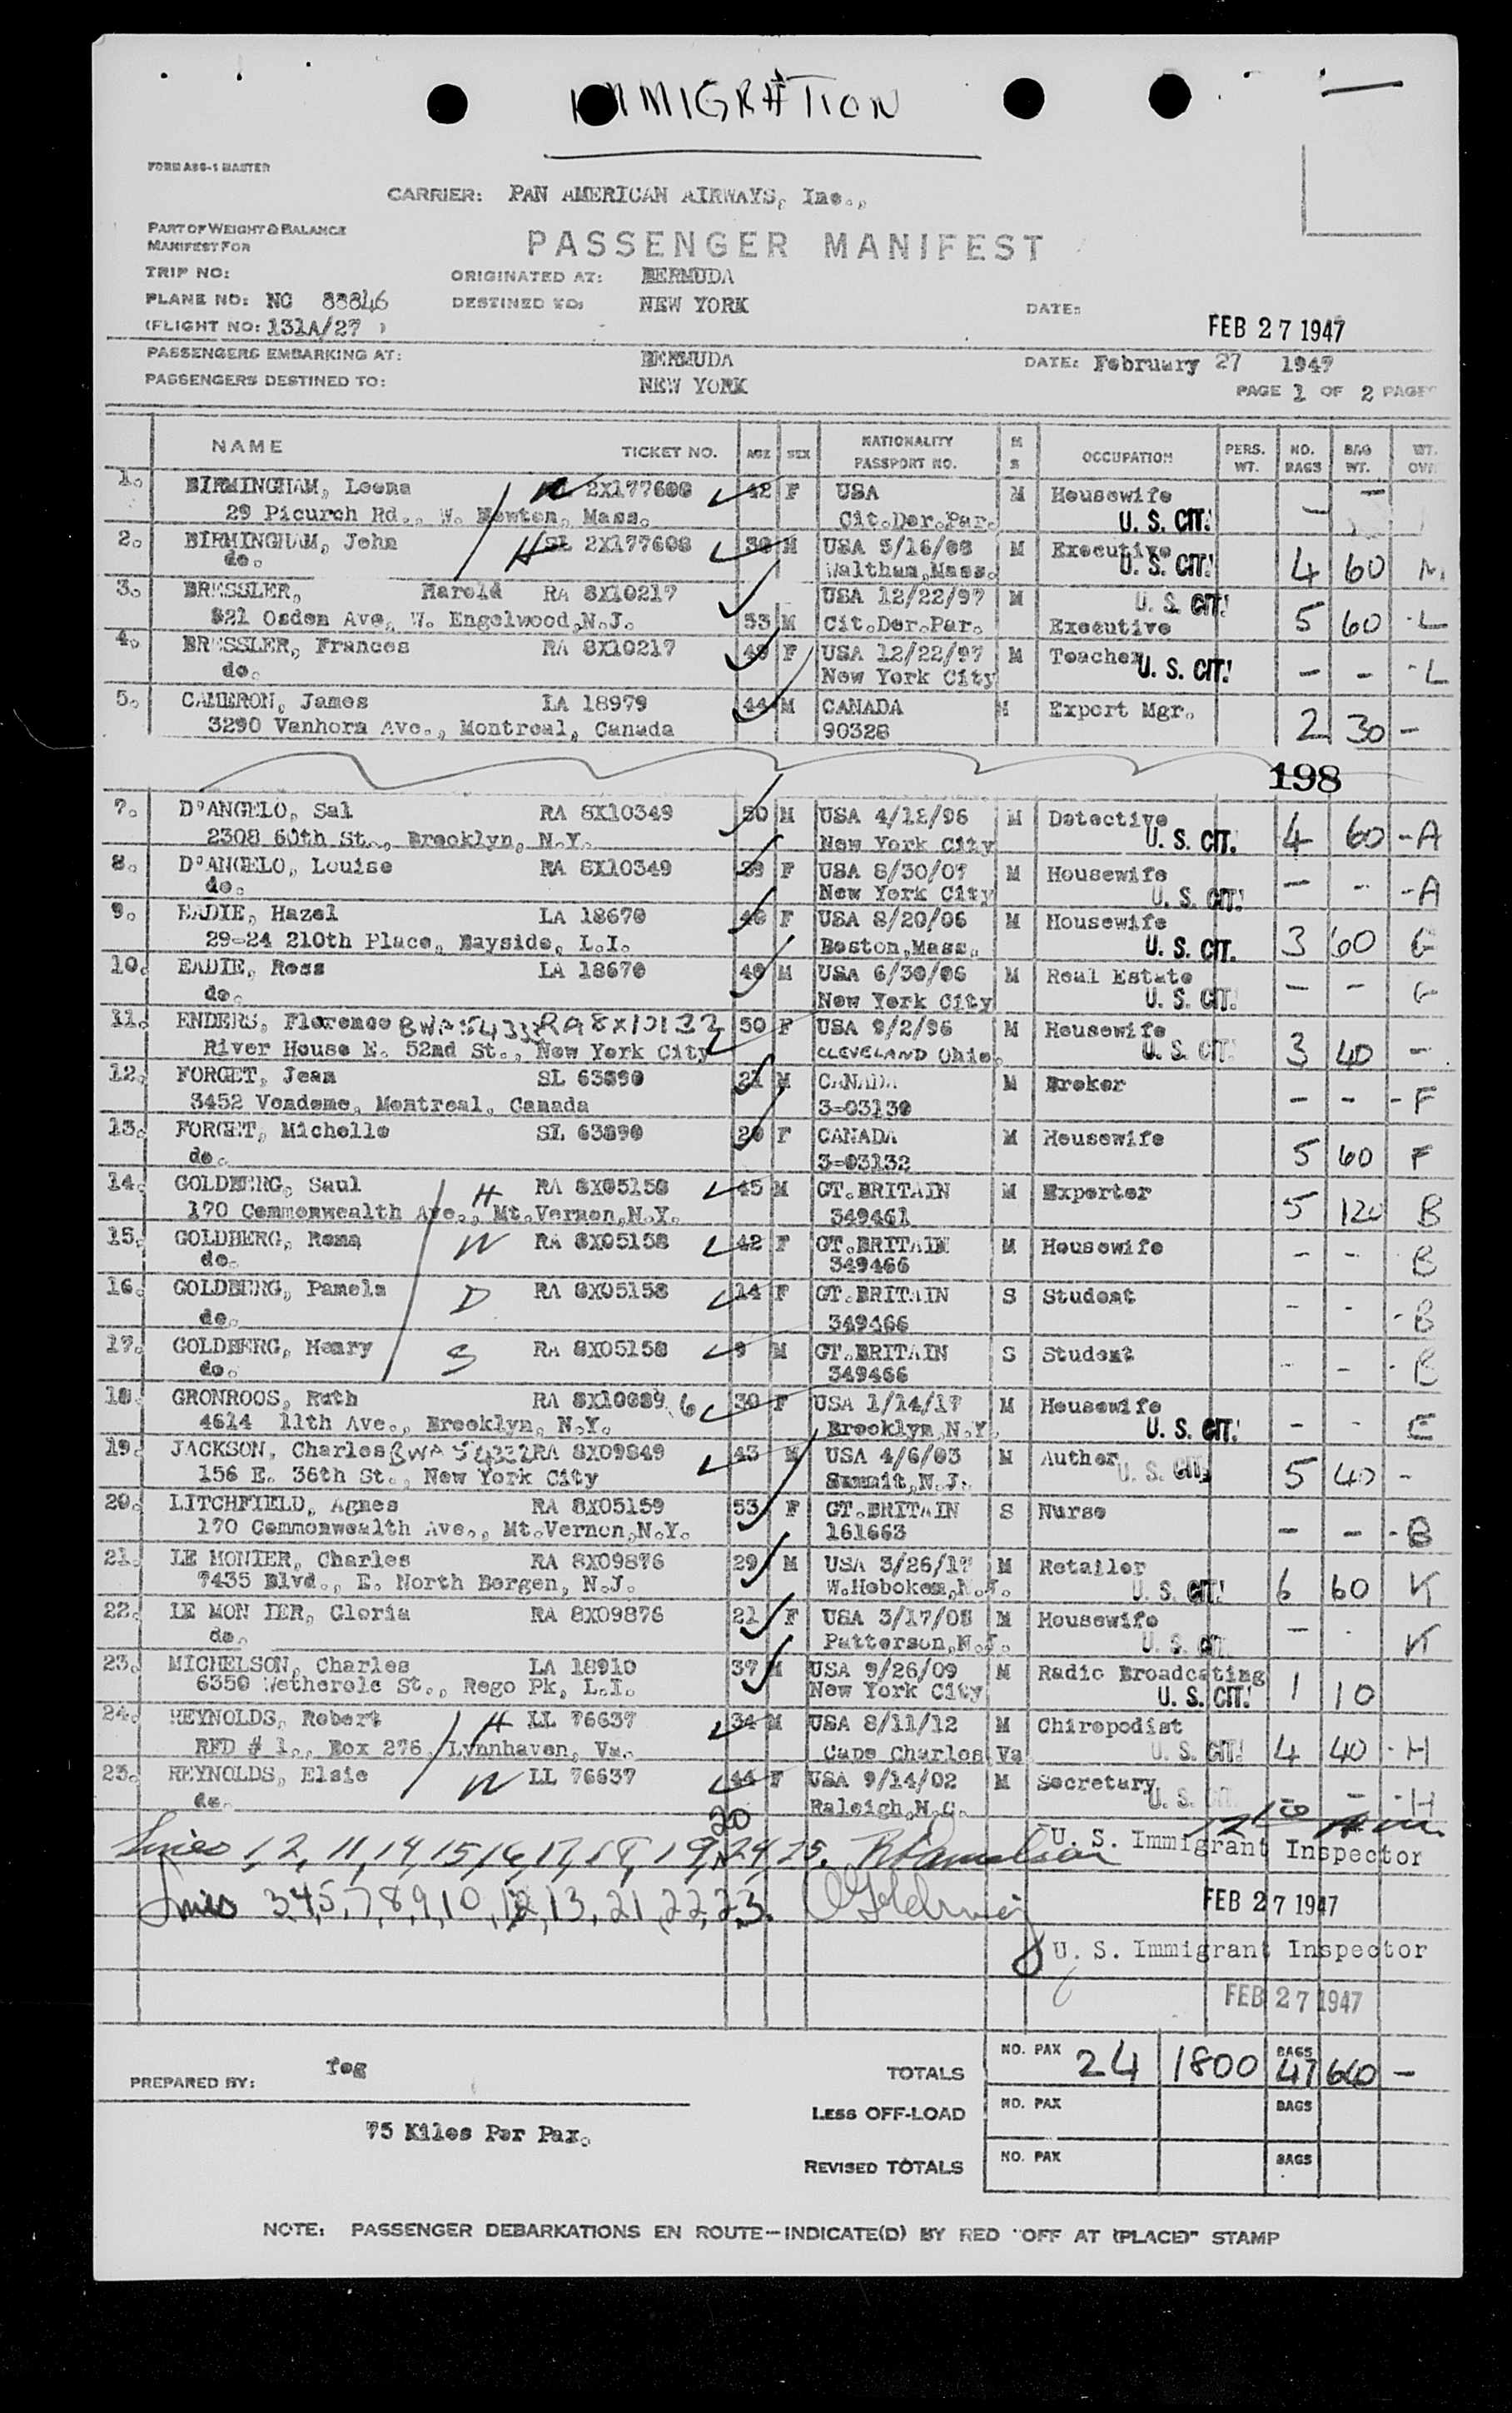 IMMIGRATION
FORM ASG-1 MASTER
CARRIER: PAN AMERICAN AIRWAYS, Inc.,
PART OF WEIGHT & BALANCE
MANIFEST FOR
PASSENGER MANIFEST
TRIP NO:
ORIGINATED AT: BERMUDA
PLANE NO: NC 88846
DESTINED TO: NEW YORK
DATE:
FEB 27 1947
(FLIGHT NO: 131A/27 )
PASSENGERS EMBARKING AT: BERMUDA
DATE: February 27 1947
PASSENGERS DESTINED TO: NEW YORK
PAGE 1 OF 2 PAGES
NAME TICKET NO. AGE SEX NATIONALITY PASSPORT NO. M S OCCUPATION PERS. WT. NO. BAGS BAG WT. WT. OVR
1. BIRMINGHAM, Leona W 2X177608 42 F USA M Housewife — —
29 Picurch Rd., W. Newton, Mass. Cit.Der.Par. U. S. CIT.
2. BIRMINGHAM, John H SL 2X177608 38 M USA 5/16/08 M Executive 4 60 M
do. Waltham,Mass. U. S. CIT.
3. BRESSLER, Harold RA 8X10217 USA 12/22/97 M U. S. CIT.
821 Osden Ave, W. Engelwood,N.J. 53 M Cit.Der.Par. Executive 5 60 -L
4. BRESSLER, Frances RA 8X10217 49 F USA 12/22/97 M Teacher U. S. CIT. - - -L
do. New York City
5. CAMERON, James LA 18979 44 M CANADA M Export Mgr. 2 30 -
3290 Vanhorn Ave., Montreal, Canada 90328
198
7. D'ANGELO, Sal RA 8X10349 50 M USA 4/12/96 M Detective 4 60 -A
2308 60th St., Brooklyn, N.Y. New York City U. S. CIT.
8. D'ANGELO, Louise RA 8X10349 39 F USA 8/30/07 M Housewife - - -A
do. New York City U. S. CIT.
9. EADIE, Hazel LA 18670 40 F USA 8/20/06 M Housewife 3 60 G
29-24 210th Place, Bayside, L.I. Boston,Mass. U. S. CIT.
10. EADIE, Ross LA 18670 40 M USA 6/30/06 M Real Estate - - G
do. New York City U. S. CIT.
11. ENDERS, Florence BWA RA8X10132 50 F USA 9/2/96 M Housewife 3 40 -
River House E. 52nd St., New York City CLEVELAND Ohio. U. S. CIT.
12. FORGET, Jean SL 63890 21 M CANADA M Broker - - -F
3452 Vendome, Montreal, Canada 3-03130
13. FORGET, Michelle SL 63890 20 F CANADA M Housewife 5 60 F
do. 3-03132
14. GOLDBERG, Saul H RA 8X05158 45 M GT.BRITAIN M Exporter 5 120 B
170 Commonwealth Ave., Mt.Vernon,N.Y. 349461
15. GOLDBERG, Rema W RA 8X05158 42 F GT.BRITAIN M Housewife - - B
do. 349466
16. GOLDBERG, Pamela D RA 8X05158 14 F GT.BRITAIN S Student - - -B
do. 349466
17. GOLDBERG, Henry S RA 8X05158 9 M GT.BRITAIN S Student - - -B
do. 349466
18. GRONROOS, Ruth 30 F USA 1/14/17 M Housewife - - E
4614 11th Ave., Brooklyn, N.Y. Brooklyn,N.Y. U. S. CIT.
19. JACKSON, Charles BWA RA 8X09849 43 M USA 4/6/03 M Author 5 40 -
156 E. 36th St., New York City Summit,N.J. U. S. CIT.
20. LITCHFIELD, Agnes RA 8X05159 53 F GT.BRITAIN S Nurse - - -B
170 Commonwealth Ave., Mt.Vernon,N.Y. 161663
21. LE MONIER, Charles RA 8X09876 29 M USA 3/26/17 M Retailer 6 60 K
7435 Blvd., E. North Bergen, N.J. W.Hoboken,N.J. U. S. CIT.
22. LE MON IER, Gloria RA 8X09876 21 F USA 3/17/08 M Housewife - - K
do. Patterson,N.J. U. S. CIT.
23. MICHELSON, Charles LA 18910 37 M USA 9/26/09 M Radio Broadcating 1 10
6350 Wetherole St., Rego Pk, L.I. New York City U. S. CIT.
24. REYNOLDS, Robert H LL 76637 34 M USA 8/11/12 M Chiropodist 4 40 -H
RFD # 1., Box 276, Lynnhaven, Va. Cape Charles Va U. S. CIT.
25. REYNOLDS, Elsie W LL 76637 44 F USA 9/14/02 M Secretary - - -H
do. Raleigh,N.C. U. S. CIT.
20
Lines 1, 2, 11, 14, 15, 16, 17, 18, 19, 24, 25.
U. S. Immigrant Inspector
Lines 3,4,5,7,8,9,10,12,13,21,22,23.
FEB 27 1947
U. S. Immigrant Inspector
FEB 27 1947
PREPARED BY: feg
TOTALS NO. PAX 24 1800 BAGS 47 640 -
LESS OFF-LOAD NO. PAX BAGS
75 Kilos Per Pax.
REVISED TOTALS NO. PAX BAGS
NOTE: PASSENGER DEBARKATIONS EN ROUTE—INDICATE(D) BY RED "OFF AT (PLACE)" STAMP